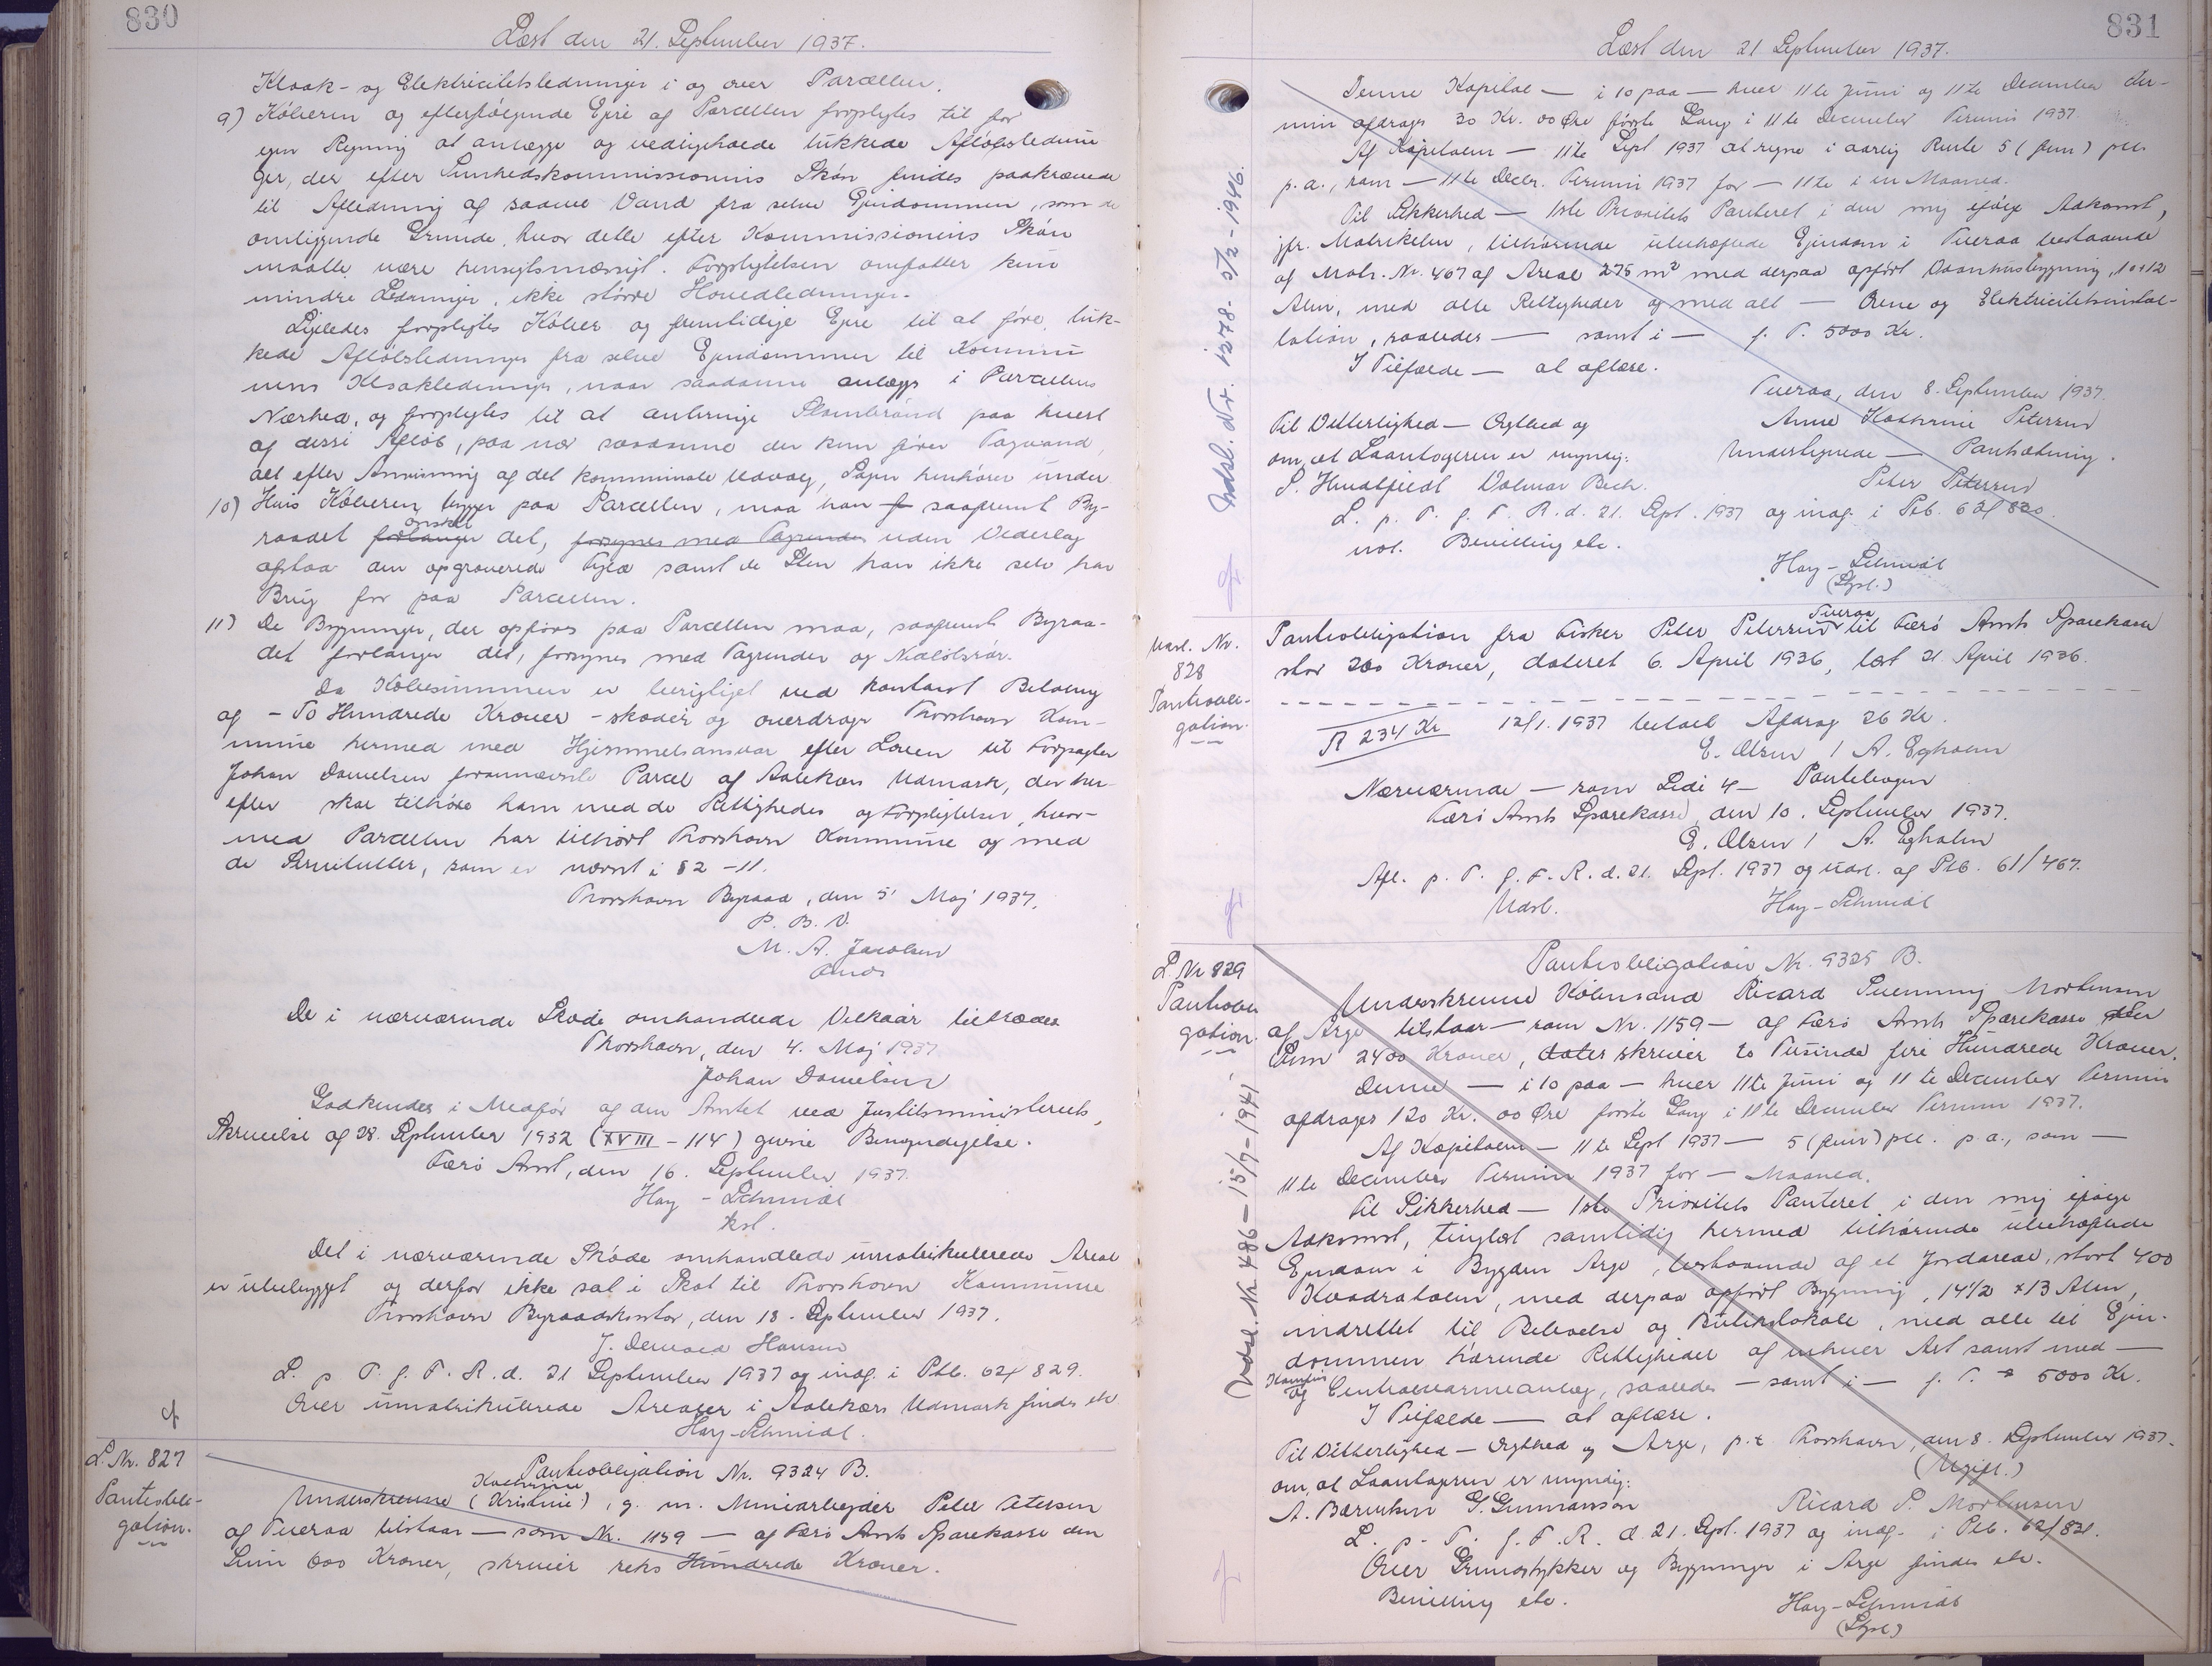 830
Læst den 21. September 1937.
Kloak- og Elektricitetsledninger i og over Parcellen.
9) Køberen og efterfølgende Ejere af Parcellen forpligtes til for
egen Regning at anlægge og vedligeholde lukkede Afløbslednin
ger, der efter Sundhedskommissionens Skøn findes paakrævede
til Afledning af saavel Vand fra selve Ejendommen, som de
omliggende Grunde, hvor dette efter Kommissionens Skøn
maatte være hensigtsmæssigt. Forpligtelsen omfatter kun
mindre Ledninger, ikke større Hovedledninger.
Ligeledes forpligtes Køber og fremtidige Ejere til at føre luk-
kede Afløbsledninger fra selve Ejendommen til Kommu
nens Kloakledninger, naar saadanne anlægges i Parcellens
Nærhed, og forpligtes til at anbringe Slambrønd paa hvert
af disse Afløb, paa nær saadanne der kun fører Tagvand,
alt efter Anvisning af det kommunale Udvalg, Sagen henhører under
10) Hvis Køberen bygger paa Parcellen, maa han f saafremt By-
ønsker
raadet forlanger det, forsynes med Tagrender uden Vederlag
afstaa den opgravede Fyld samt de Sten han ikke selv har
Brug for paa Parcellen.
11) De Bygninger, der opføres paa Parcellen maa, saafremt Byraa-
det forlanger det, forsynes med Tagrender og Nedløbsrør.
Da Købesummen er berigtiget ved kontant Betaling
af - To Hundrede Kroner - skøder og overdrager Thorshavn Kom-
mune hermed med Hjemmelsansvar efter Loven til Forpagter
Johan Danielsen forannævnte Parcel af Aalekærs Udmark, der her-
efter skal tilhøre ham med de Rettigheder og Forpligtelser, hvor-
med Parcellen har tilhørt Thorshavn Kommune og med
de Servitutter, som er nævnt i § 2 - 11.
Thorshavn Byraad, den 5' Maj 1937.
P. B. V.
M. A. Jacobsen
De i nærværende Skøde omhandlede Vilkaar tiltrædes
Thorshavn, den 4. Maj 1937
Johan Danielsen
Godkendes i Medfør af den Amtet ved Justitsministeriets
Skrivelse af 28. September 1932 (XVIII - 114) givne Bemyndigelse.
Færø Amt, den 16. September 1937.
Hay - Schmidt
kst.
Det i nærværende Skøde omhandlede umatrikulerede Areal
er ubebygget og derfor ikke sat i Skat til Thorshavn Kommune
Thorshavn Byraadskontor, den 18. September 1937.
J. Hansen
L. p. T. f. F. R. d. 21 September 1937 og indf. i Ptb. 62/829.
Over umatrikulerede Arealer i Aalekærs Udmark findes etc
Hay-Schmidt.
L. Nr. 827
Pantobli-
gation.
Pantobligation Nr. 9324 B.
Kathrine
Underskrevne (Kristine), g. m. Minearbejder Peter Petersen
af Tveraa tilstaar — som Nr. 1159 — af Færø Amts Sparekasse den
Sum 600 Kroner, skriver seks Hundrede Kroner.
831
Læst den 21 September 1937.
Denne Kapital — i 10 paa — hver 11te Juni og 11te December Ter-
min afdrages 30 Kr. 00 Øre første Gang i 11te December Termin 1937.
Af Kapitalen — 11te Sept 1937 at regne i aarlig Rente 5 (fem) pct.
p. a., som — 11te Decbr. Termin 1937 for — 11te i en Maaned.
Til Sikkerhed — 1ste Prioritets Panteret i den mig ifølge Adkomst,
jfr. Matrikelen, tilhørende ubehæftede Ejendom i Tveraa bestaaende
af Matr. Nr. 467 af Areal 275 m² med derpaa opført Vaaningsbygning, 10x12
Alen, med alle Rettigheder og med alt — Ovne og Elektricitetsinstal-
lation, saaledes — samt i — f. T. 5000 Kr.
I Tilfælde — at aflæse.
Tveraa, den 8. September 1937.
Til Vitterlighed — Ægthed og
Anne Kathrine Petersen
om, at Laantageren er myndig:
Undertegnede — Pantsætning.
P. Hvidtfeldt Valmar Bech.
Peter Petersen
L. p. T. f. F. R. d. 21. Sept. 1937 og indf. i Ptb. 62/830.
not. Bevilling etc.
Hay - Schmidt
(Gpl.)
Udsl. Nr. 1278 - 5/2 - 1946.
Udsl. Nr.
828
Pantobli-
gation.
Pantobligation fra Fisker Peter Petersen Tveraa til Færø Amts Sparekasse
stor 260 Kroner, dateret 6. April 1936, læst 21 April 1936.
R 234 Kr 12/1. 1937 betalt Afdrag 26 Kr.
E. Olsen / A. Egholm
Nærværende — som Side 4 — Pantebogen
Færø Amts Sparekasse, den 10. September 1937.
E. Olsen / A. Egholm
Afl. p. T. f. F. R. d. 21. Sept. 1937 og udsl. af Ptb. 61/467.
Udsl.
Hay-Schmidt
L. Nr 829
Pantobli
gation.
Pantobligation Nr. 9325 B.
Underskrevne Købmand Ricard Mortensen
af Arge tilstaar — som Nr. 1159 — af Færø Amts Sparekasse den
Sum 2400 Kroner, skriver to Tusinde fire Hundrede Kroner.
Denne — i 10 paa — hver 11te Juni og 11 te December Termin
afdrages 120 Kr. 00 Øre første Gang i 11te December Termin 1937.
Af Kapitalen — 11te Sept 1937 — 5 (fem) pct. p. a., som —
11te December Termin 1937 for — Maaned.
Til Sikkerhed — 1ste Prioritets Panteret i den mig ifølge
Adkomst, tinglæst samtidig hermed tilhørende ubehæftede
Ejendom i Bygden Arge, bestaaende af et Jordareal, stort 400
Kvadratalen, med derpaa opført Bygning, 14½ x 13 Alen,
indrettet til Beboelse og Butikslokale, med alle til Ejen-
dommen hørende Rettigheder af enhver Art samt med —
Komfur
og Centralvarmeanlæg, saaledes — samt i — f. T. 5000 Kr.
I Tilfælde — at aflæse.
Til Vitterlighed — Ægthed og Arge, p.t. Thorshavn, den 8. September 1937.
om, at Laantageren er myndig:
(Ugift.)
A. Bærentsen G. Gunnarsson
Ricard P. Mortensen
L. p. T. f. F. R. d. 21. Sept. 1937 og indf. i Ptb. 62/831.
Over Grundstykker og Bygninger i Arge findes etc.
Bevilling etc.
Hay-Schmidt
(Gpl.)
Udsl. Nr 486 - 15/7 - 1941